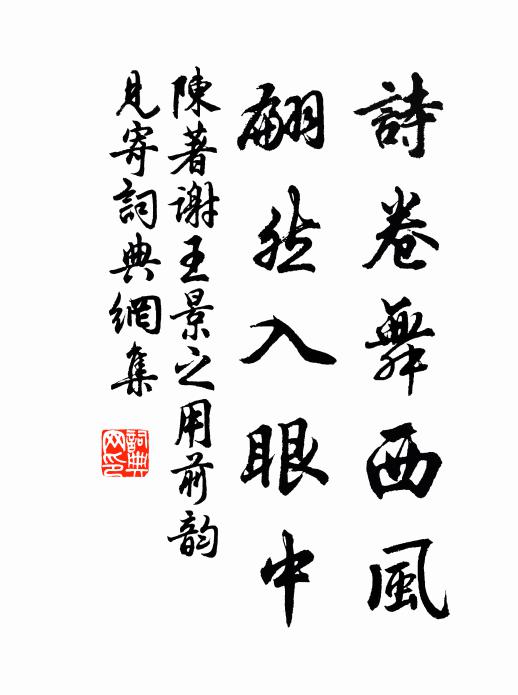 詩卷舞西風
翩然入眼中
陳著謝王景之用前韵
見寄詞典網集
詞典
网印